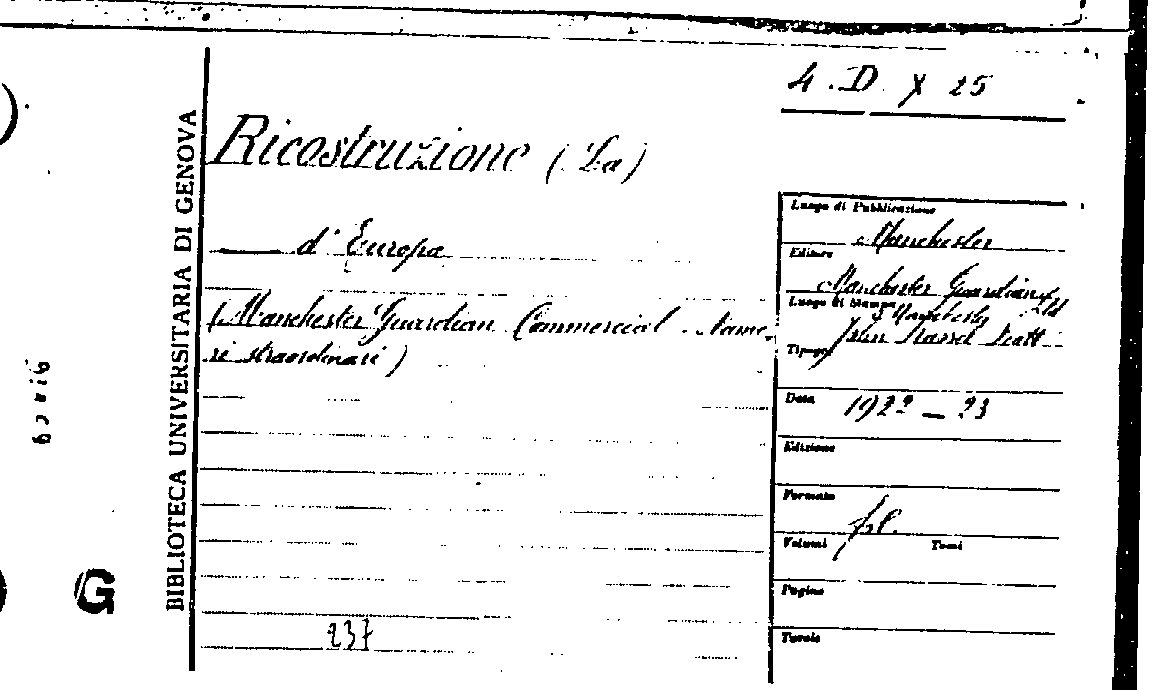 4. D. X 25
BIBLIOTECA UNIVERSITARIA DI GENOVA
Ricostruzione (La)
d'Europa
(Manchester Guardian Commercial. Nume-
ri straordinari)
237
Luogo di Pubblicazione
Manchester
Editore
Manchester Guardian Ltd
Luogo di Stampa
Tipogr.
John Russel Scott
Data 1922-23
Edizione
Formato
Volumi Tomi
Pagine
Tavole
G